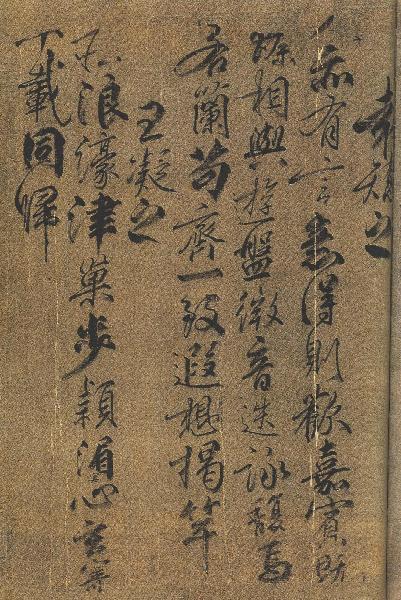 袁嶠之
人亦有言意得則歡嘉賓既
臻相與遊盤微音迭詠馥焉
若蘭苟齊一致遐想揭竿
王凝之
莊浪濠津巢步潁湄心真寄
千載同歸